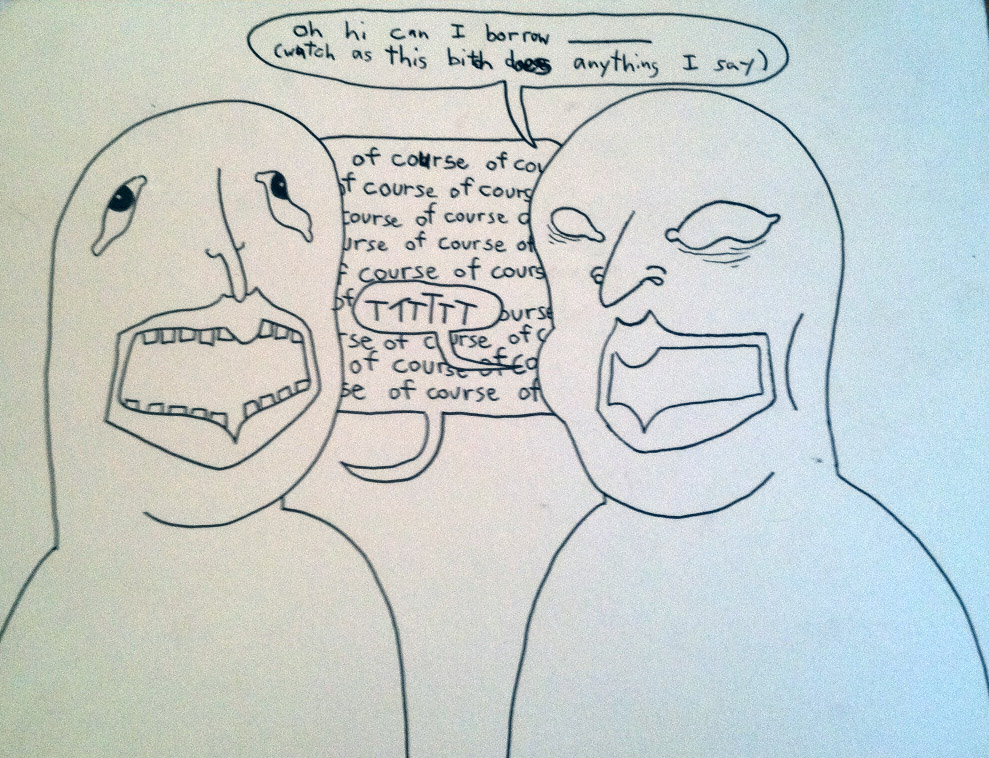 oh hi can I borrow ______
(watch as this bith does anything I say)
of course of cou
f course of cours
course of course o
urse of course of
f course of cours
of TTTTTT ourse
rse of c urse of c
of course of co
se of course of